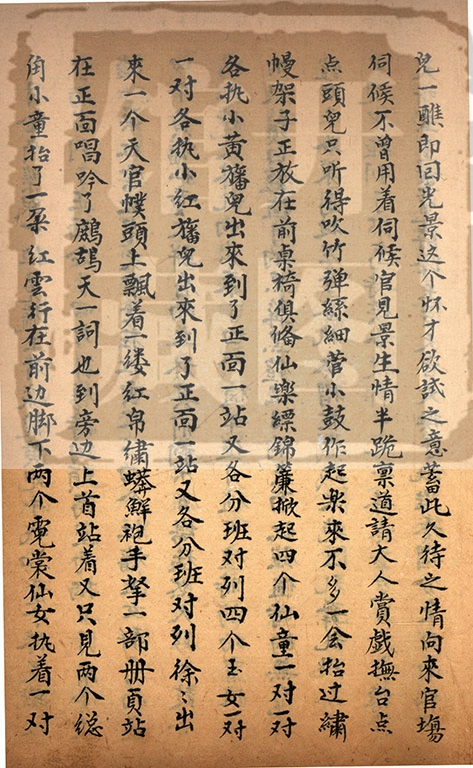 兒一瞧即回光景这个怀才欲試之意蓄此久待之情向來官塲
伺候不曾用着伺候官見景生情半跪禀道請大人賞戯撫台点
点頭兒只听得吹竹弹絲細管小鼓作起楽來不多一会抬过繡
幔架子正放在前桌椅俱俻仙楽縹錦簾掀起四个仙童一对一对
各执小黄旛兒出來到了正面一站又各分班对列四个玉女一对
一对各执小红旛兒出來到了正面一站又各分班对列徐〻出
來一个天官幞頭上飄着一缕红帛繡蟒觧袍手拏一部册頁站
在正面唱吟了鷓鴣天一詞也到旁边上首站着又只見两个総
角小童抬了一朶红雲行在前边脚下两个霓裳仙女执着一对